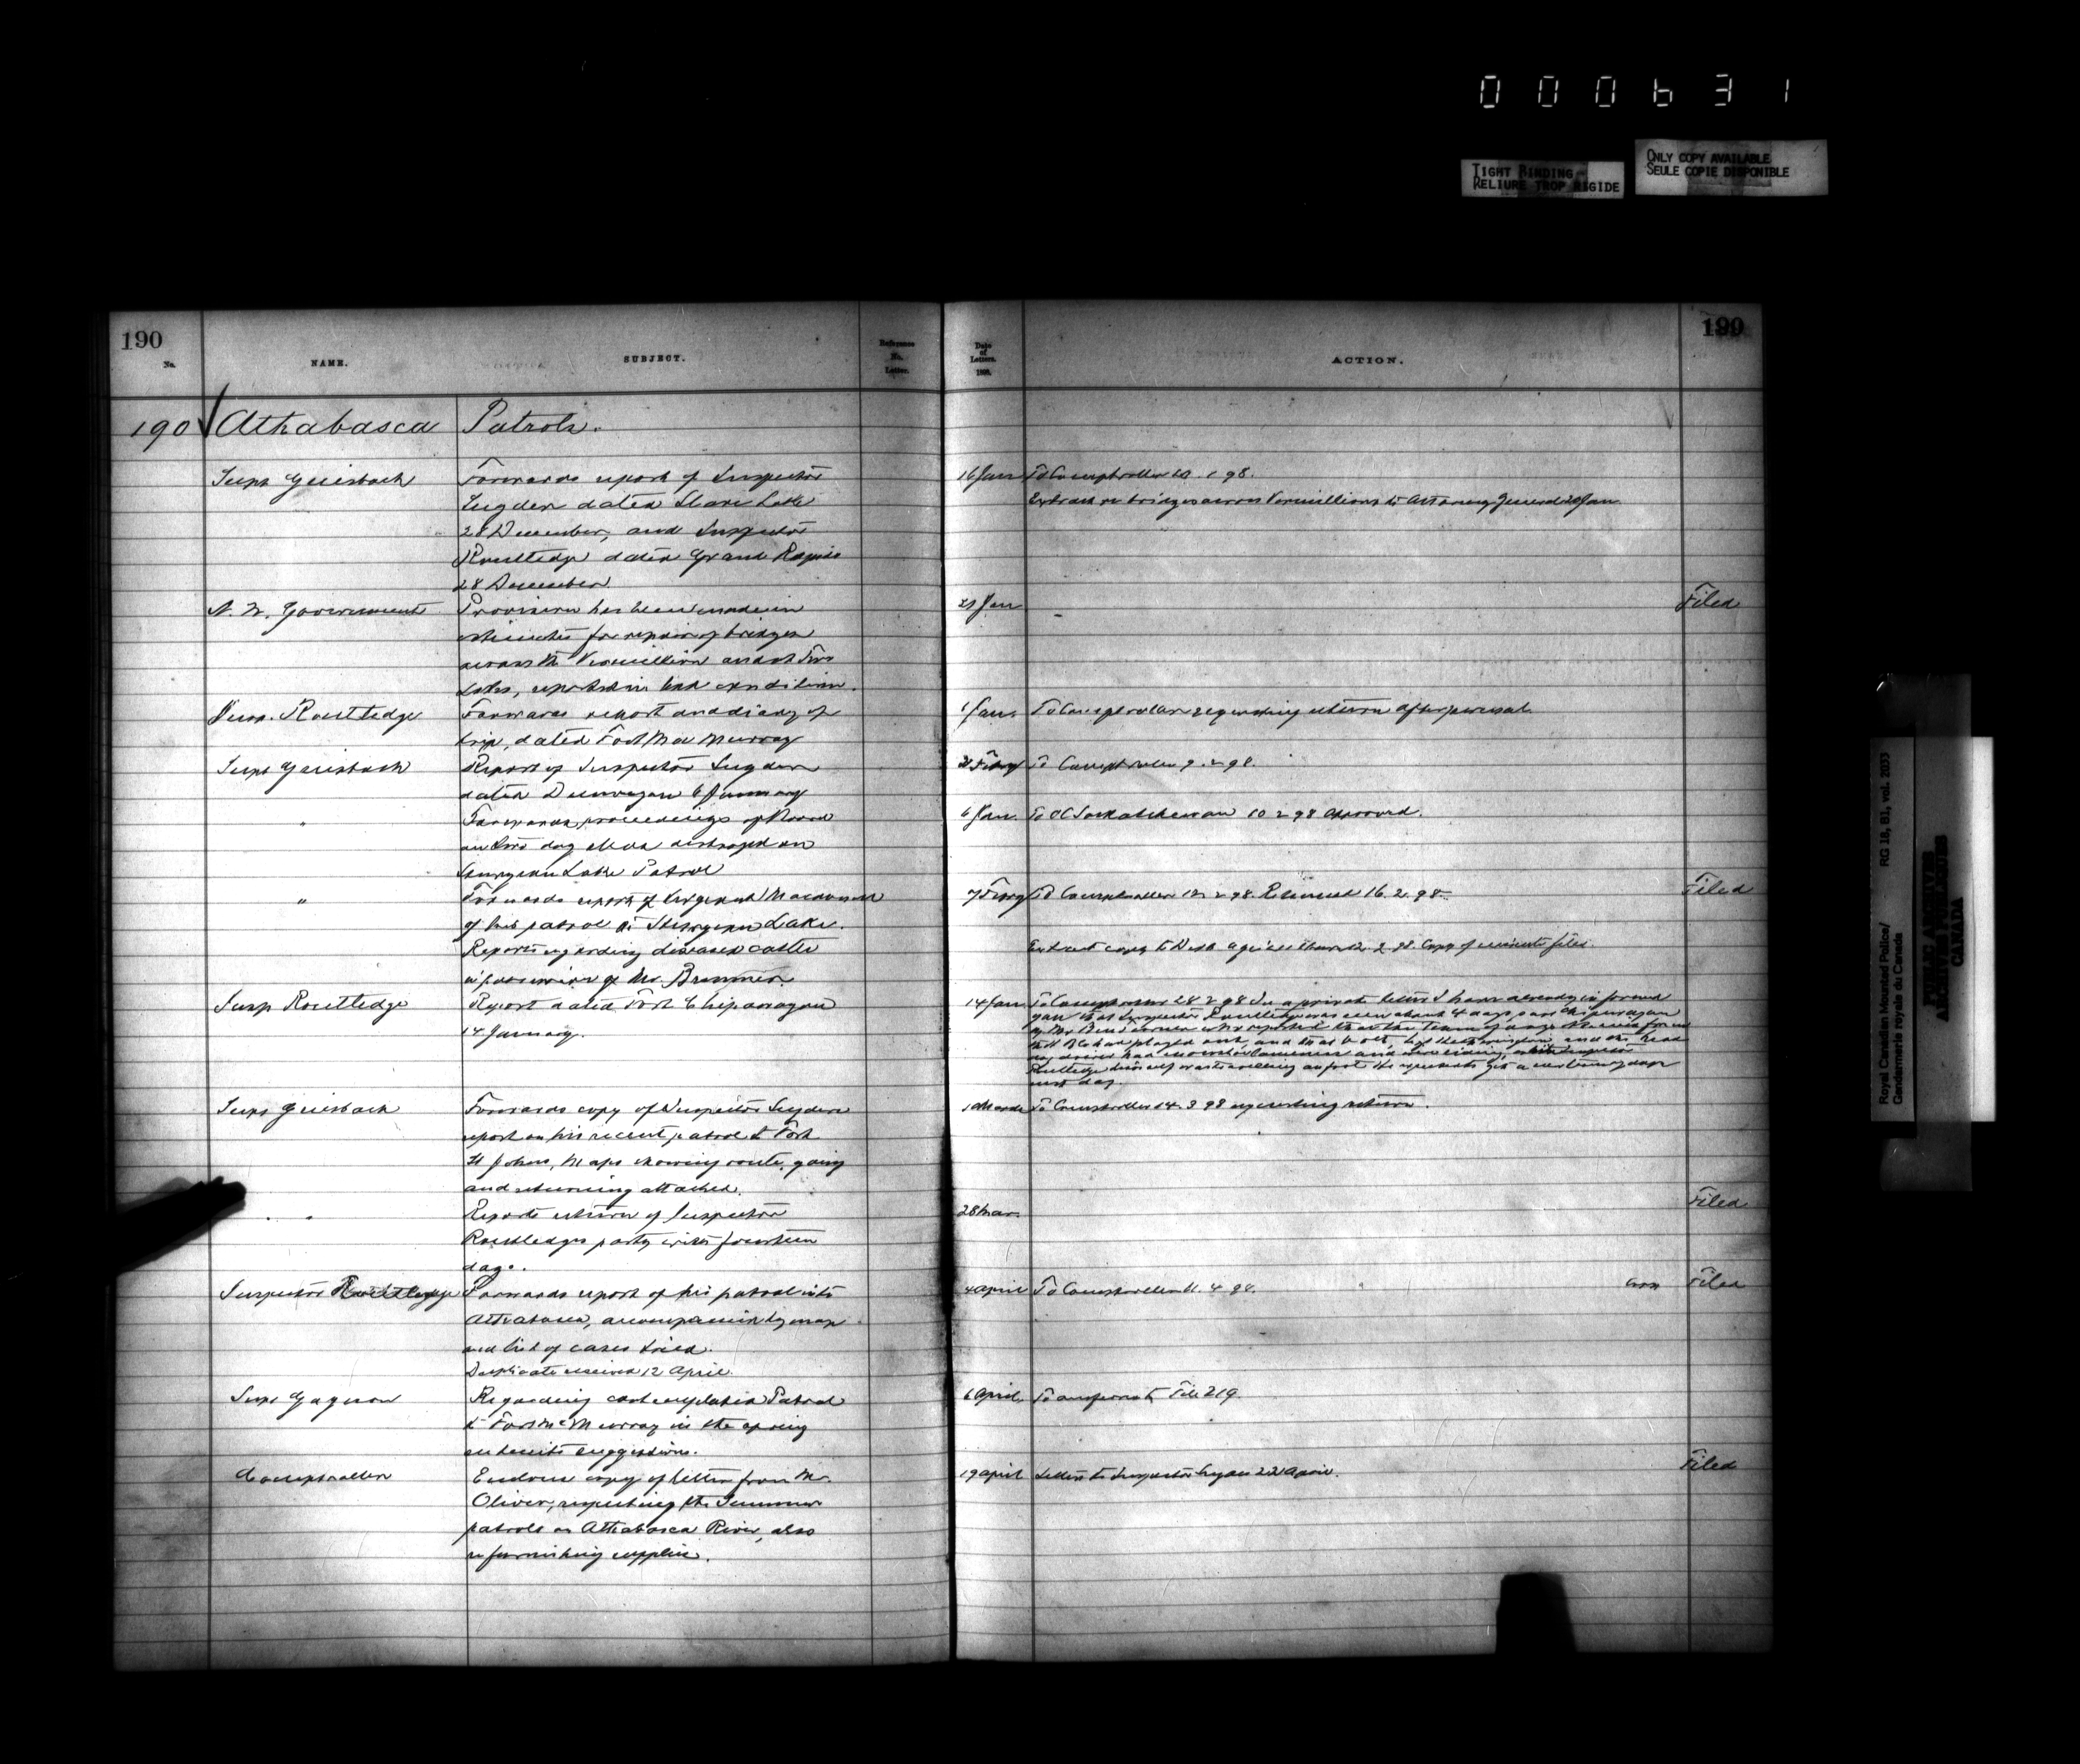 000631
TIGHT BINDING
RELIURE TROP RIGIDE
ONLY COPY AVAILABLE
SEULE COPIE DISPONIBLE
190
No.
NAME.
SUBJECT.
Reference No. Letter.
Date of Letters. 1898.
ACTION.
190
190 Athabasca Patrols.
Supt Griesbach
Forwards report of Inspector
dated Slave Lake
28 December, and Inspector
Routledge dated Grand Rapids
28 December
16 Jan To Comptroller
Extract re bridges across Vermillion to Attorney General 20 Jan
N.W. Government
Provision has been made in
estimates for repair of bridges
across the Vermillion and at Two
Lakes, reported in bad condition.
21 Jan
Filed
Insp. Routledge
Forwards report and diary of
trip, dated Fort Mc Murray
1 Jan. To Comptroller requesting return after perusal.
Supt Griesbach
Report of Inspector
dated Dunvegan 6 January
To Comptroller 9.2.98.
"
Forwards proceedings of Board
on two dog destroyed on
Sturgeon Lake Patrol
6 Jan. To OC Saskatchewan 10 2 98 approved.
"
Forwards report of Sergeant Macdonald
of his patrol to Sturgeon Lake.
Reports regarding diseased cattle
in possession of Mr. Brummer.
7 To Comptroller 12 2 98. Returned 16.2.98
Extract copy to Copy of files
Filed
Insp Routledge
Report dated Fort Chipewyan
14 January.
14 Jan To Comptroller 28 2 98 In a private letter I have already informed
you that Inspector Routledge was seen about 4 days past Chipewyan
by Mr who reported that the team of dogs
had played out, and that
dog driver had and were riding, while Inspector
Routledge himself was travelling on foot He expected to get a of dogs
next day.
Supt Griesbach
Forwards copy of Inspector
report on his recent patrol to Fort
St Johns, Maps showing route, going
and returning attached.
1 March To Comptroller 14 3 98 requesting return.
" "
Reports return of Inspector
Routledges party with fourteen
dogs.
28 Mar.
Filed
Inspector Routledge
Forwards report of his patrol into
Athabasca, accompanied by map
and list of cases tried.
Duplicate received 12 April.
4 April To Comptroller 11.4.98.
Filed
Supt Gagnon
Regarding contemplated Patrol
to Fort McMurray in the spring
submits suggestions.
6 April. Transferred to File 219.
Comptroller
Encloses copy of letter from Mr.
Oliver, respecting the Summer
patrols on Athabasca River, also
re furnishing supplies.
19 April Letter to Inspector 22 April.
Filed
Royal Canadian Mounted Police/ RG 18, B1, vol. 2033
Gendarmerie royale du Canada
PUBLIC ARCHIVES
ARCHIVES PUBLIQUES
CANADA